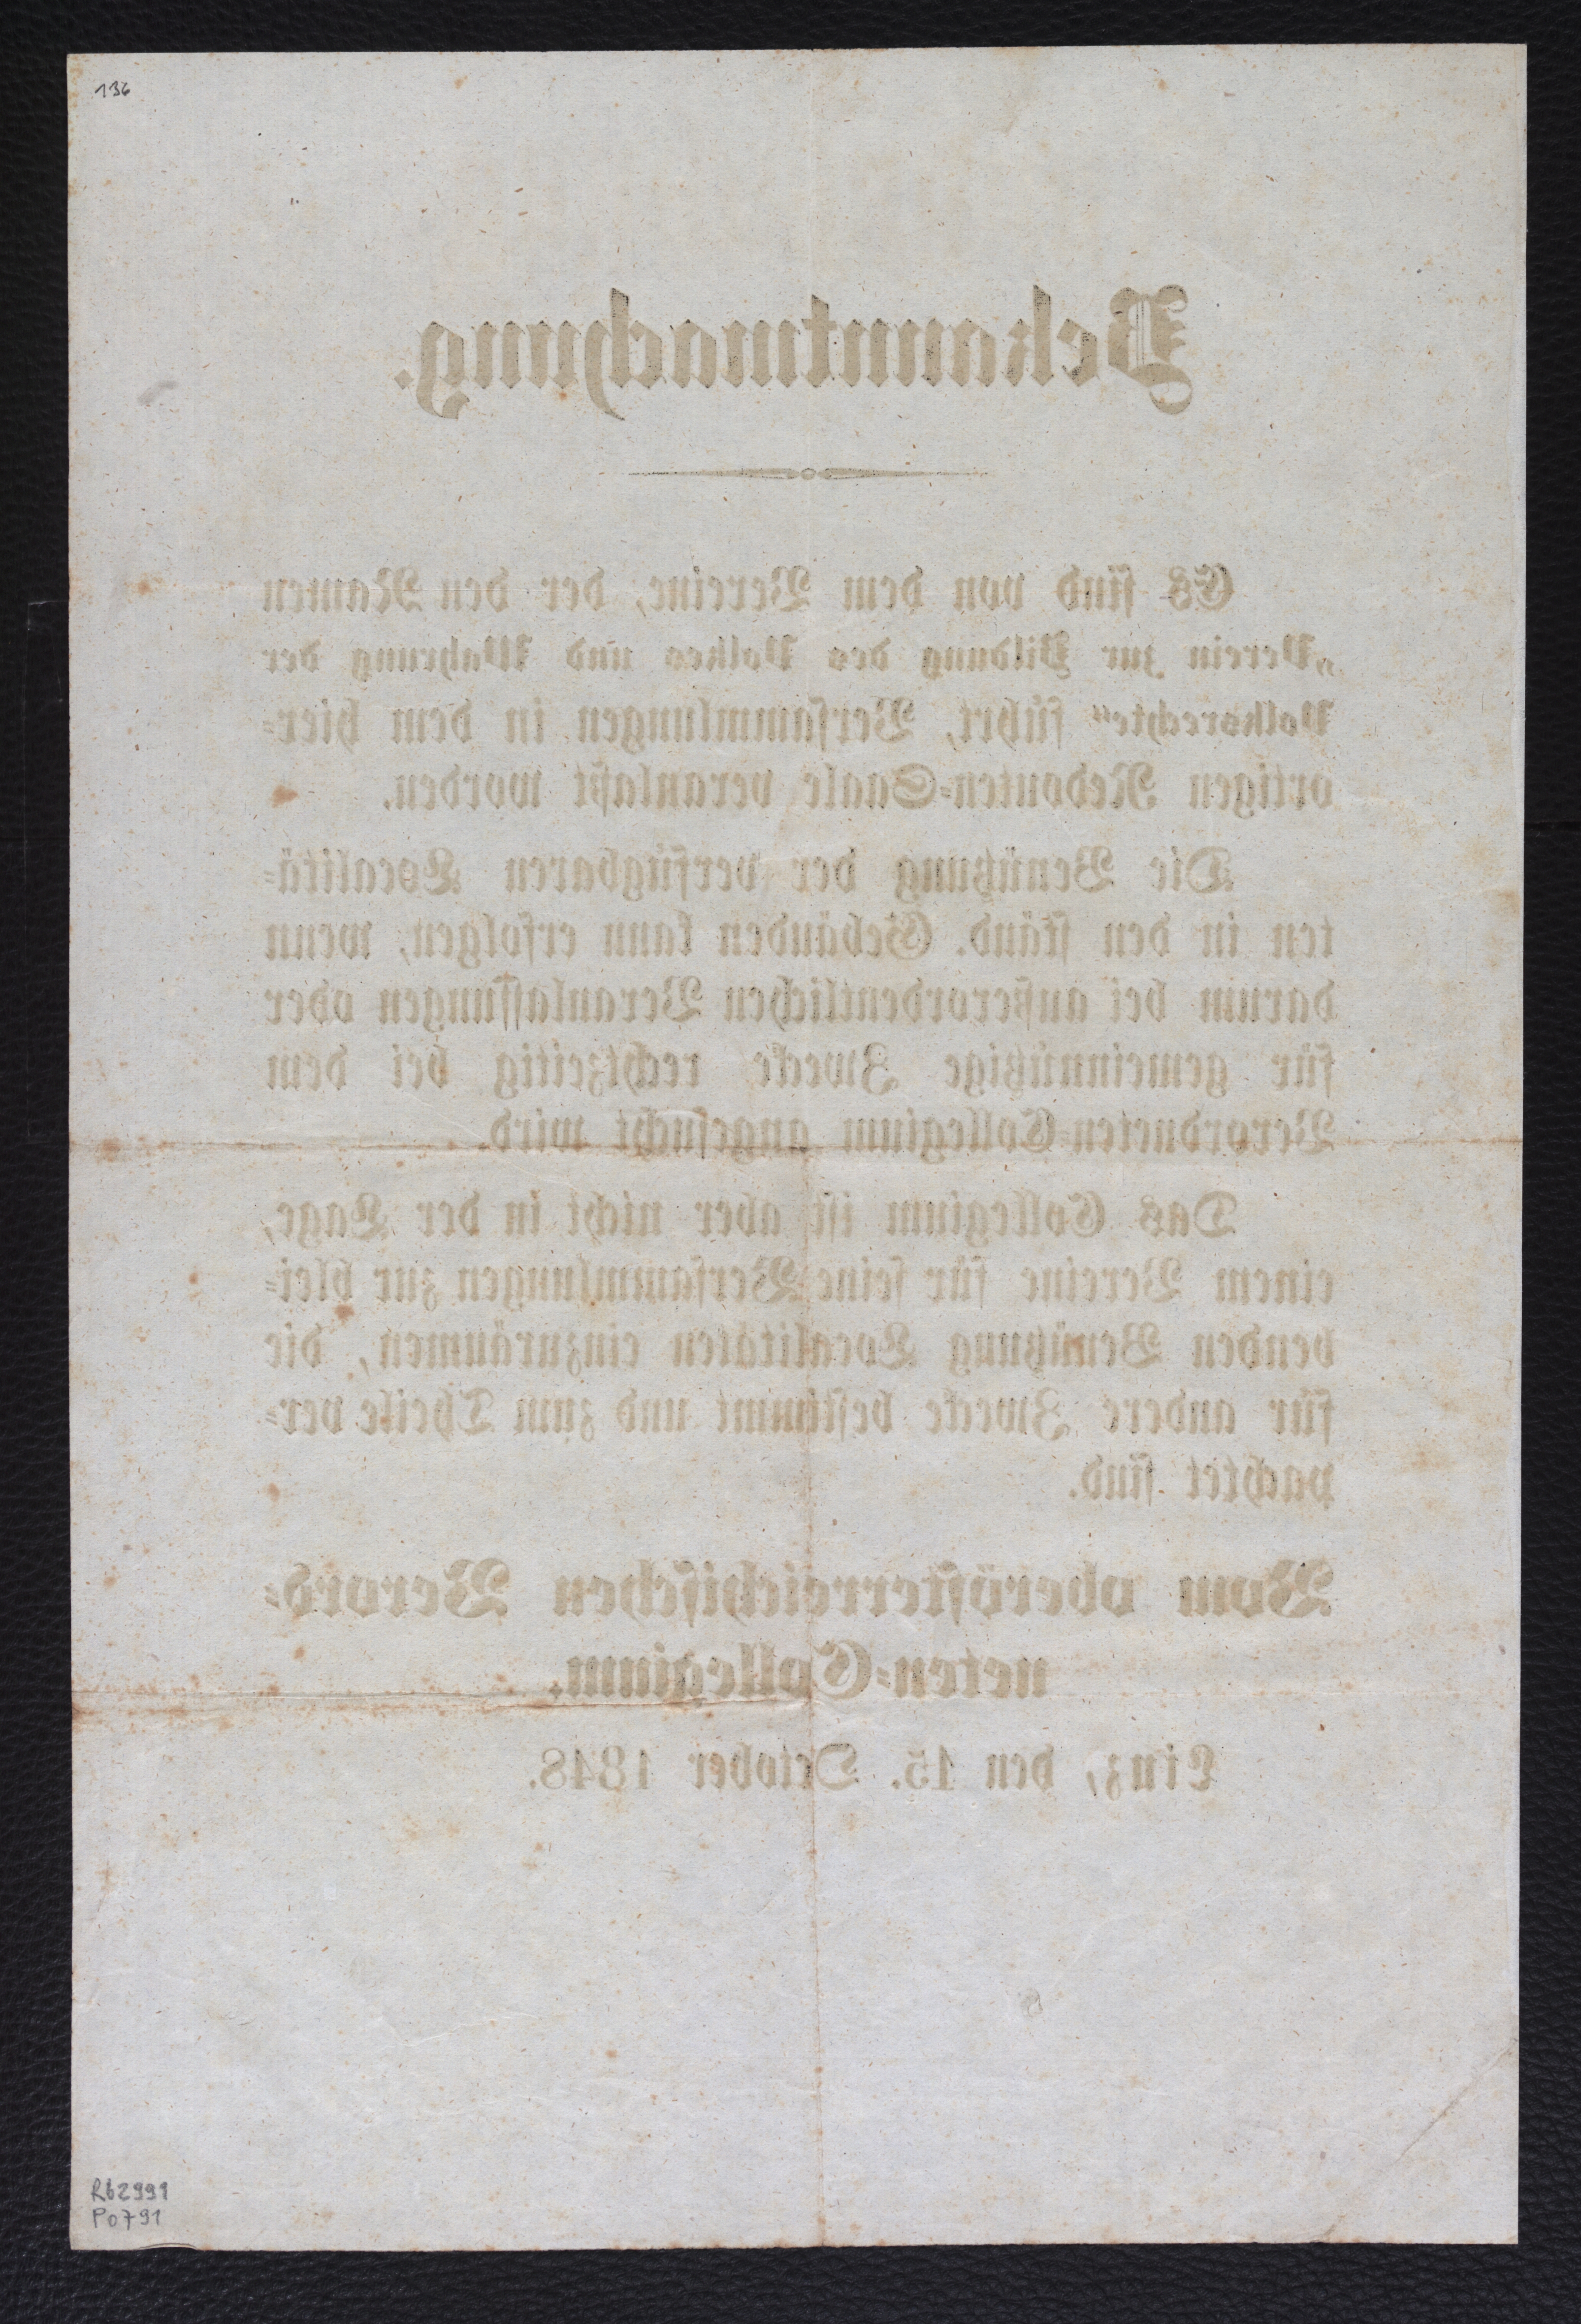 136
Bekanntmachung.
Es sind von dem Vereine, der den Namen
„Verein zur Bildung des Volkes und Wahrung der
Volksrechte" führt, Versammlungen in dem hier-
ortigen Redouten-Saale veranlaßt worden.
Die Benützung der verfügbaren Localitä-
ten in den ständ. Gebäuden kann erfolgen, wenn
darum bei außerordentlichen Veranlassungen oder
für gemeinnützige Zwecke rechtzeitig bei dem
Verordneten-Collegium angesucht wird.
Das Collegium ist aber nicht in der Lage,
einem Vereine für seine Versammlungen zur blei-
benden Benützung Localitäten einzuräumen, die
für andere Zwecke bestimmt und zum Theile ver-
pachtet sind.
Vom oberösterreichischen Verord-
neten-Collegium.
Linz, den 15. October 1848.
Rb2991
Po791